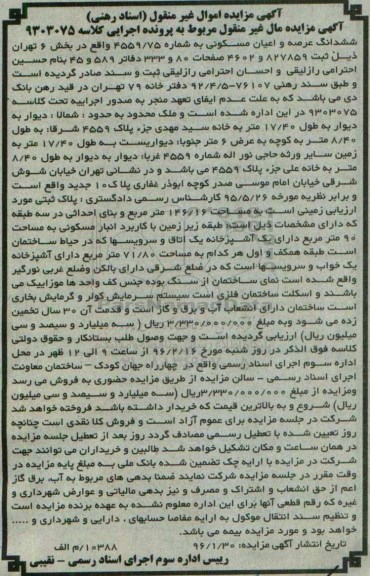 آگهی مزایده اموال غیر منقول (اسناد رهنی)
آگهی مزایده مال غیر منقول مربوط به پرونده اجرایی کلاسه ۹۳۰۳۰۷۵
ششدانگ عرصه و اعیان مسکونی به شماره ۴۵۵۹/۷۵ واقع در بخش ۶ تهران
ذیل ثبت ۸۲۷۸۵۹ و ۴۶۰۲ صفحات ۸۰ و ۳۳۳ دفاتر ۵۸۹ و ۴۵ بنام حسین
احترامی رازلیقی و احسان احترامی رازلیقی ثبت و سند صادر گردیده است
و طبق سند رهنی ۷۶۱۰۷-۹۲/۴/۵ دفتر خانه ۷۹ تهران در قید رهن بانک
دی می باشند که به علت عدم ایفای تعهد منجر به صدور اجراییه تحت کلاسه
۹۳۰۳۰۷۵ در این اداره شده است و ملک محدود به حدود : شمالا : دیوار به
دیوار به طول ۱۷/۴۰ متر به خانه سید مهدی جزء پلاک ۴۵۵۹ شرقا: به طول
۸/۴۰ متر به کوچه به عرض ۶ متر جنوبا: دیواریست به طول ۱۷/۴۰ متر به
زمین سایر ورثه حاجی نور اله شماره ۴۵۵۹ غربا: دیوار به دیوار به طول ۸/۴۰
متر به خانه علی جزء پلاک ۴۵۵۹ می باشند و در نشانی تهران خیابان شوش
شرقی خیابان امام موسی صدر کوچه ابوذر غفاری پلاک ۱۰ جدید واقع است
و برابر نظریه مورخه ۹۵/۵/۲۶ کارشناس رسمی دادگستری : پلاک ثبتی مورد
ارزیابی زمینی است به مساحت ۱۴۶/۱۶ متر مربع و بنای احداثی در سه طبقه
که دارای مشخصات ذیل است: طبقه زیر زمین با کاربرد انبار مسکونی به مساحت
۹۰ متر مربع دارای یک آشپزخانه یک اتاق و سرویسها که در حیاط ساختمان
است طبقه همکف و اول هر کدام به مساحت ۷۱/۸۰ متر مربع دارای آشپزخانه
یک خواب و سرویسها است که در ضلع شرقی دارای بالکن وضلع غربی نورگیر
واقع شده است نمای ساختمان از سنگ بوده جنس کف واحد ها موزاییک می
باشند و اسکلت ساختمان فلزی است سیستم سرمایش کولر و گرمایش بخاری
است ساختمان دارای انشعاب آب و برق و گاز است و قدمت آن ۳۰ سال تخمین
زده می شود وبه مبلغ ۳/۳۳۰/۰۰۰/۰۰۰ ریال ( سه میلیارد و سیصد و سی
میلیون ریال) ارزیابی گردیده است و جهت وصول طلب بستانکار و حقوق دولتی
کلاسه فوق الذکر در روز شنبه مورخ ۹۶/۲/۱۶ از ساعت ۹ الی ۱۲ ظهر در محل
اداره سوم اجرای اسناد رسمی واقع در چهارراه جهان کودک - ساختمان معاونت
اجرای اسناد رسمی - سالن مزایده از طریق مزایده حضوری به فروش می رسد
ومزایده از مبلغ ۳/۳۳۰/۰۰۰/۰۰۰ ریال (سه میلیارد و سیصد و سی میلیون
ریال) شروع و به بالاترین قیمت که خریدار داشته باشد فروخته خواهد شد
شرکت در جلسه مزایده برای عموم آزاد است و فروش کلا نقدی است چنانچه
روز تعیین شده با تعطیل رسمی مصادف گردد روز بعد از تعطیل جلسه مزایده
در همان ساعت و مکان تشکیل خواهد شد طالبین و خریداران می توانند جهت
شرکت در مزایده با ارایه چک تضمین شده بانک ملی به مبلغ پایه مزایده در
وقت مقرر در جلسه مزایده شرکت نمایند ضمنا بدهی های مربوط به آب، برق گاز
اعم از حق انشعاب و اشتراک و مصرف و نیز بدهی مالیاتی و عوارض شهرداری و
غیره که رقم قطعی آنها برای این اداره معلوم نشده به عهده برنده مزایده است
و تنظیم سند انتقال موکول به ارایه مفاصا حسابهای . دارایی و شهرداری و .....
خواهد بود و مورد مزایده بیمه می باشد.
تاریخ انتشار آگهی مزایده: ۹۶/۱/۳۰ ۱۰۳۸۸/م الف
رییس اداره سوم اجرای اسناد رسمی - نقیبی